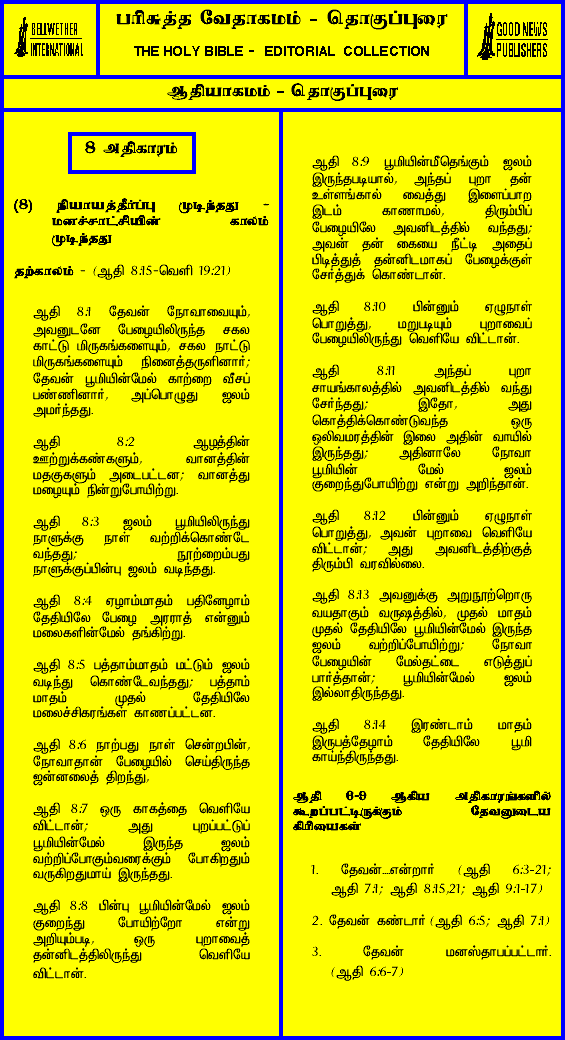 BELLWETHER
INTERNATIONAL
பரிசுத்த வேதாகமம் - தொகுப்புரை
THE HOLY BIBLE - EDITORIAL COLLECTION
GOOD NEWS
PUBLISHERS
ஆதியாகமம் - தொகுப்புரை
8 அதிகாரம்
(8) நியாயத்தீர்ப்பு முடிந்தது -
மனச்சாட்சியின் காலம்
முடிந்தது
தற்காலம் - (ஆதி 8:15-வெளி 19:21)
ஆதி 8:1 தேவன் நோவாவையும்,
அவனுடனே பேழையிலிருந்த சகல
காட்டு மிருகங்களையும், சகல நாட்டு
மிருகங்களையும் நினைத்தருளினார்;
தேவன் பூமியின்மேல் காற்றை வீசப்
பண்ணினார், அப்பொழுது ஜலம்
அமர்ந்தது.
ஆதி 8:2 ஆழத்தின்
ஊற்றுக்கண்களும், வானத்தின்
மதகுகளும் அடைபட்டன; வானத்து
மழையும் நின்றுபோயிற்று.
ஆதி 8:3 ஜலம் பூமியிலிருந்து
நாளுக்கு நாள் வற்றிக்கொண்டே
வந்தது; நூற்றைம்பது
நாளுக்குப்பின்பு ஜலம் வடிந்தது.
ஆதி 8:4 ஏழாம்மாதம் பதினேழாம்
தேதியிலே பேழை அரராத் என்னும்
மலைகளின்மேல் தங்கிற்று.
ஆதி 8:5 பத்தாம்மாதம் மட்டும் ஜலம்
வடிந்து கொண்டேவந்தது; பத்தாம்
மாதம் முதல் தேதியிலே
மலைச்சிகரங்கள் காணப்பட்டன.
ஆதி 8:6 நாற்பது நாள் சென்றபின்,
நோவாதான் பேழையில் செய்திருந்த
ஜன்னலைத் திறந்து,
ஆதி 8:7 ஒரு காகத்தை வெளியே
விட்டான்; அது புறப்பட்டுப்
பூமியின்மேல் இருந்த ஜலம்
வற்றிப்போகும்வரைக்கும் போகிறதும்
வருகிறதுமாய் இருந்தது.
ஆதி 8:8 பின்பு பூமியின்மேல் ஜலம்
குறைந்து போயிற்றோ என்று
அறியும்படி, ஒரு புறாவைத்
தன்னிடத்திலிருந்து வெளியே
விட்டான்.
ஆதி 8:9 பூமியின்மீதெங்கும் ஜலம்
இருந்தபடியால், அந்தப் புறா தன்
உள்ளங்கால் வைத்து இளைப்பாற
இடம் காணாமல், திரும்பிப்
பேழையிலே அவனிடத்தில் வந்தது;
அவன் தன் கையை நீட்டி அதைப்
பிடித்துத் தன்னிடமாகப் பேழைக்குள்
சேர்த்துக் கொண்டான்.
ஆதி 8:10 பின்னும் ஏழுநாள்
பொறுத்து, மறுபடியும் புறாவைப்
பேழையிலிருந்து வெளியே விட்டான்.
ஆதி 8:11 அந்தப் புறா
சாயங்காலத்தில் அவனிடத்தில் வந்து
சேர்ந்தது; இதோ, அது
கொத்திக்கொண்டுவந்த ஒரு
ஒலிவமரத்தின் இலை அதின் வாயில்
இருந்தது; அதினாலே நோவா
பூமியின் மேல் ஜலம்
குறைந்துபோயிற்று என்று அறிந்தான்.
ஆதி 8:12 பின்னும் ஏழுநாள்
பொறுத்து, அவன் புறாவை வெளியே
விட்டான்; அது அவனிடத்திற்குத்
திரும்பி வரவில்லை.
ஆதி 8:13 அவனுக்கு அறுநூற்றொரு
வயதாகும் வருஷத்தில், முதல் மாதம்
முதல் தேதியிலே பூமியின்மேல் இருந்த
ஜலம் வற்றிப்போயிற்று; நோவா
பேழையின் மேல்தட்டை எடுத்துப்
பார்த்தான்; பூமியின்மேல் ஜலம்
இல்லாதிருந்தது.
ஆதி 8:14 இரண்டாம் மாதம்
இருபத்தேழாம் தேதியிலே பூமி
காய்ந்திருந்தது.
ஆதி 6-9 ஆகிய அதிகாரங்களில்
கூறப்பட்டிருக்கும் தேவனுடைய
கிரியைகள்
1. தேவன்...என்றார் (ஆதி 6:3-21;
ஆதி 7:1; ஆதி 8:15,21; ஆதி 9:1-17)
2. தேவன் கண்டார் (ஆதி 6:5; ஆதி 7:1)
3. தேவன் மனஸ்தாபப்பட்டார்.
(ஆதி 6:6-7)